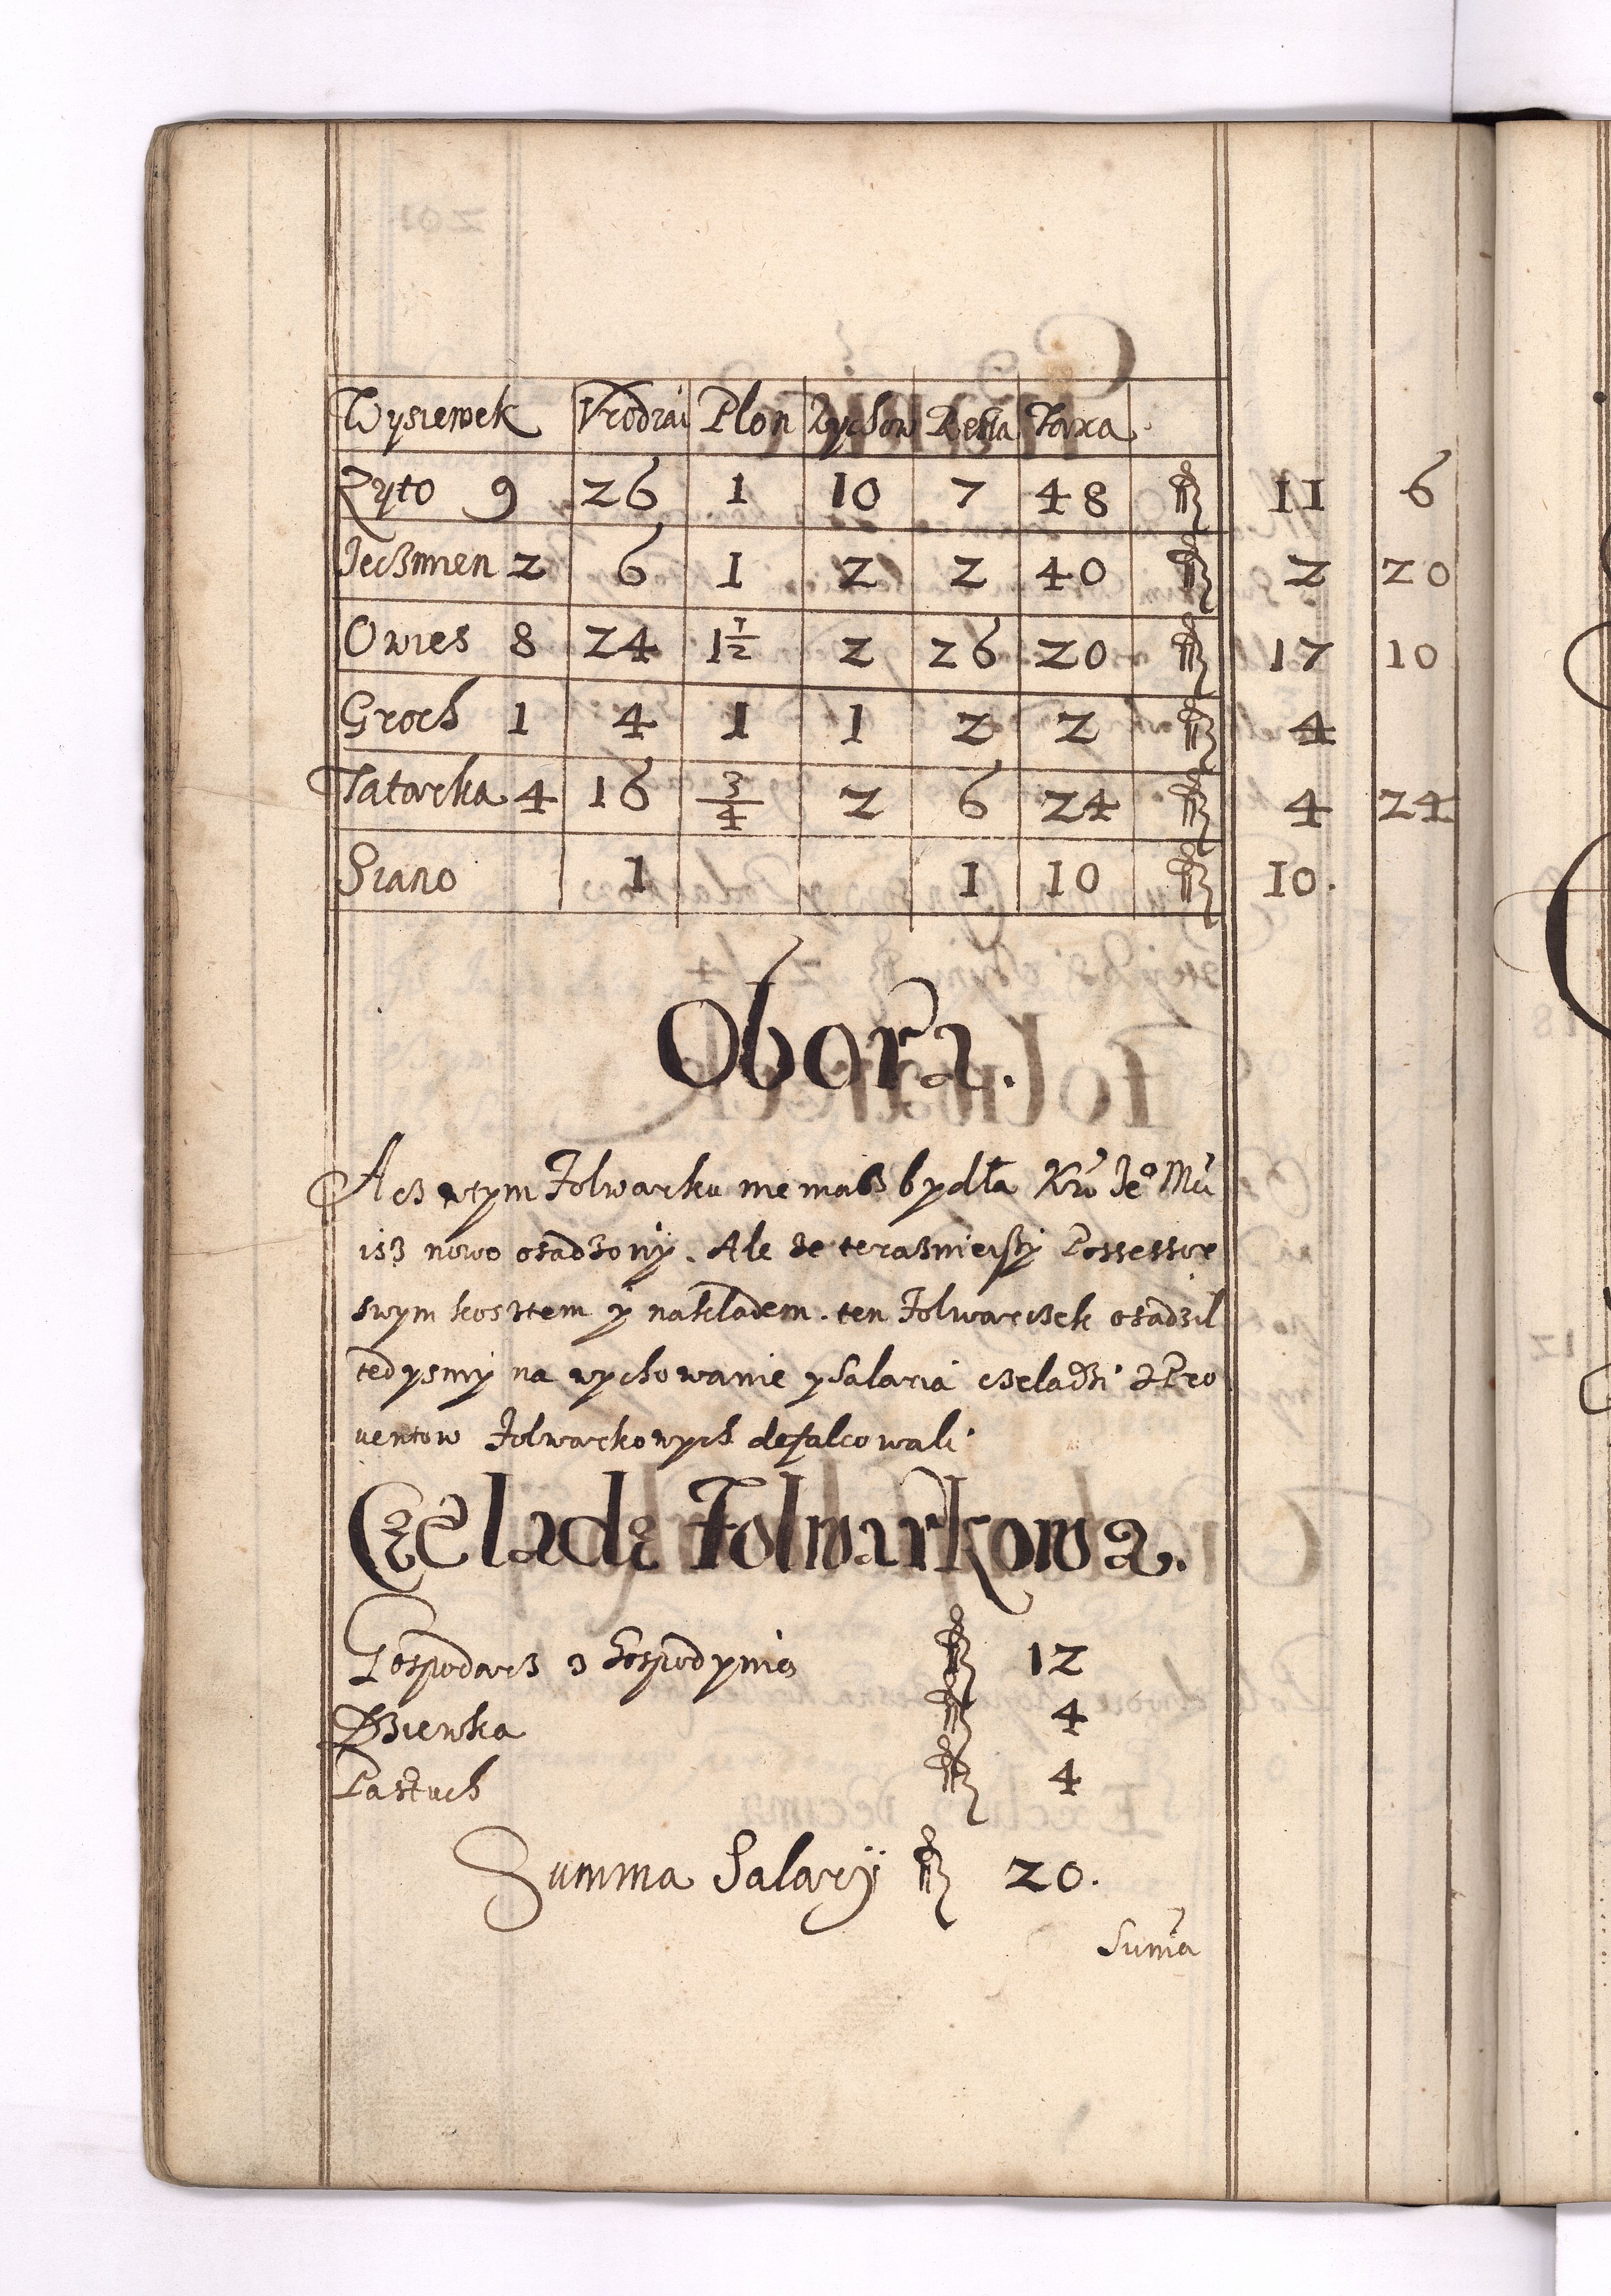 Wysiewek Vrodzai Plon Rychow Resta Taxa
Zyto 9 26 1 10 7 48 fl 11 6
Jeczmien 2 6 1 2 2 40 fl 2 20
Owies 8 24 1 1/2 2 26 20 fl 17 10
Groch 1 4 1 1 2 2 fl 4
Tatarka 4 16 3/4 2 6 24 fl 4 24
Siano 1 1 10 fl 10.
Obora.
Acz wtym Folwarku niemasz bydła Kró Jeo Mci
isz nowo osadzony. Ale ze teraznieiszy Possessor
swym kosztem y nakladem. ten Folwarczek osadzil
tedysmy na wychowanie y Salaria czeladzi z Pro
uentow Folwarkowych defalcowali
Czeladz Folwarkowa.
Gospodarz z Gospodynią fl 12
Dziewka fl 4
Pastuch fl 4
Summa Salarÿ fl 20.
Sum̃a